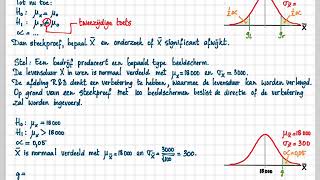 tot nu toe:
H₀: μₓ = μ₀
H₁: μₓ ≠ μ₀ tweezijdige toets
α = ...
½α ½α
g₁ g₂ X̄
Dan steekproef, bepaal X̄ en onderzoek of X̄ significant afwijkt.
Stel: Een bedrijf produceert een bepaald type beeldscherm.
De levensduur X in uren is normaal verdeeld met μₓ = 18 000 en σₓ = 3000.
De afdeling R&D denkt een verbetering te hebben, waarmee de levensduur kan worden verlengd.
Op grond van een steekproef met 100 beeldschermen beslist de directie of de verbetering
zal worden ingevoerd.
H₀: μₓ = 18 000
H₁: μₓ > 18 000
α = 0,05
X̄ is normaal verdeeld met μ_X̄ = 18 000 en σ_X̄ = 3000/√100 = 300.
μ_X̄ = 18 000
σ_X̄ = 300
α = 0,05
18 000 g X̄
g =